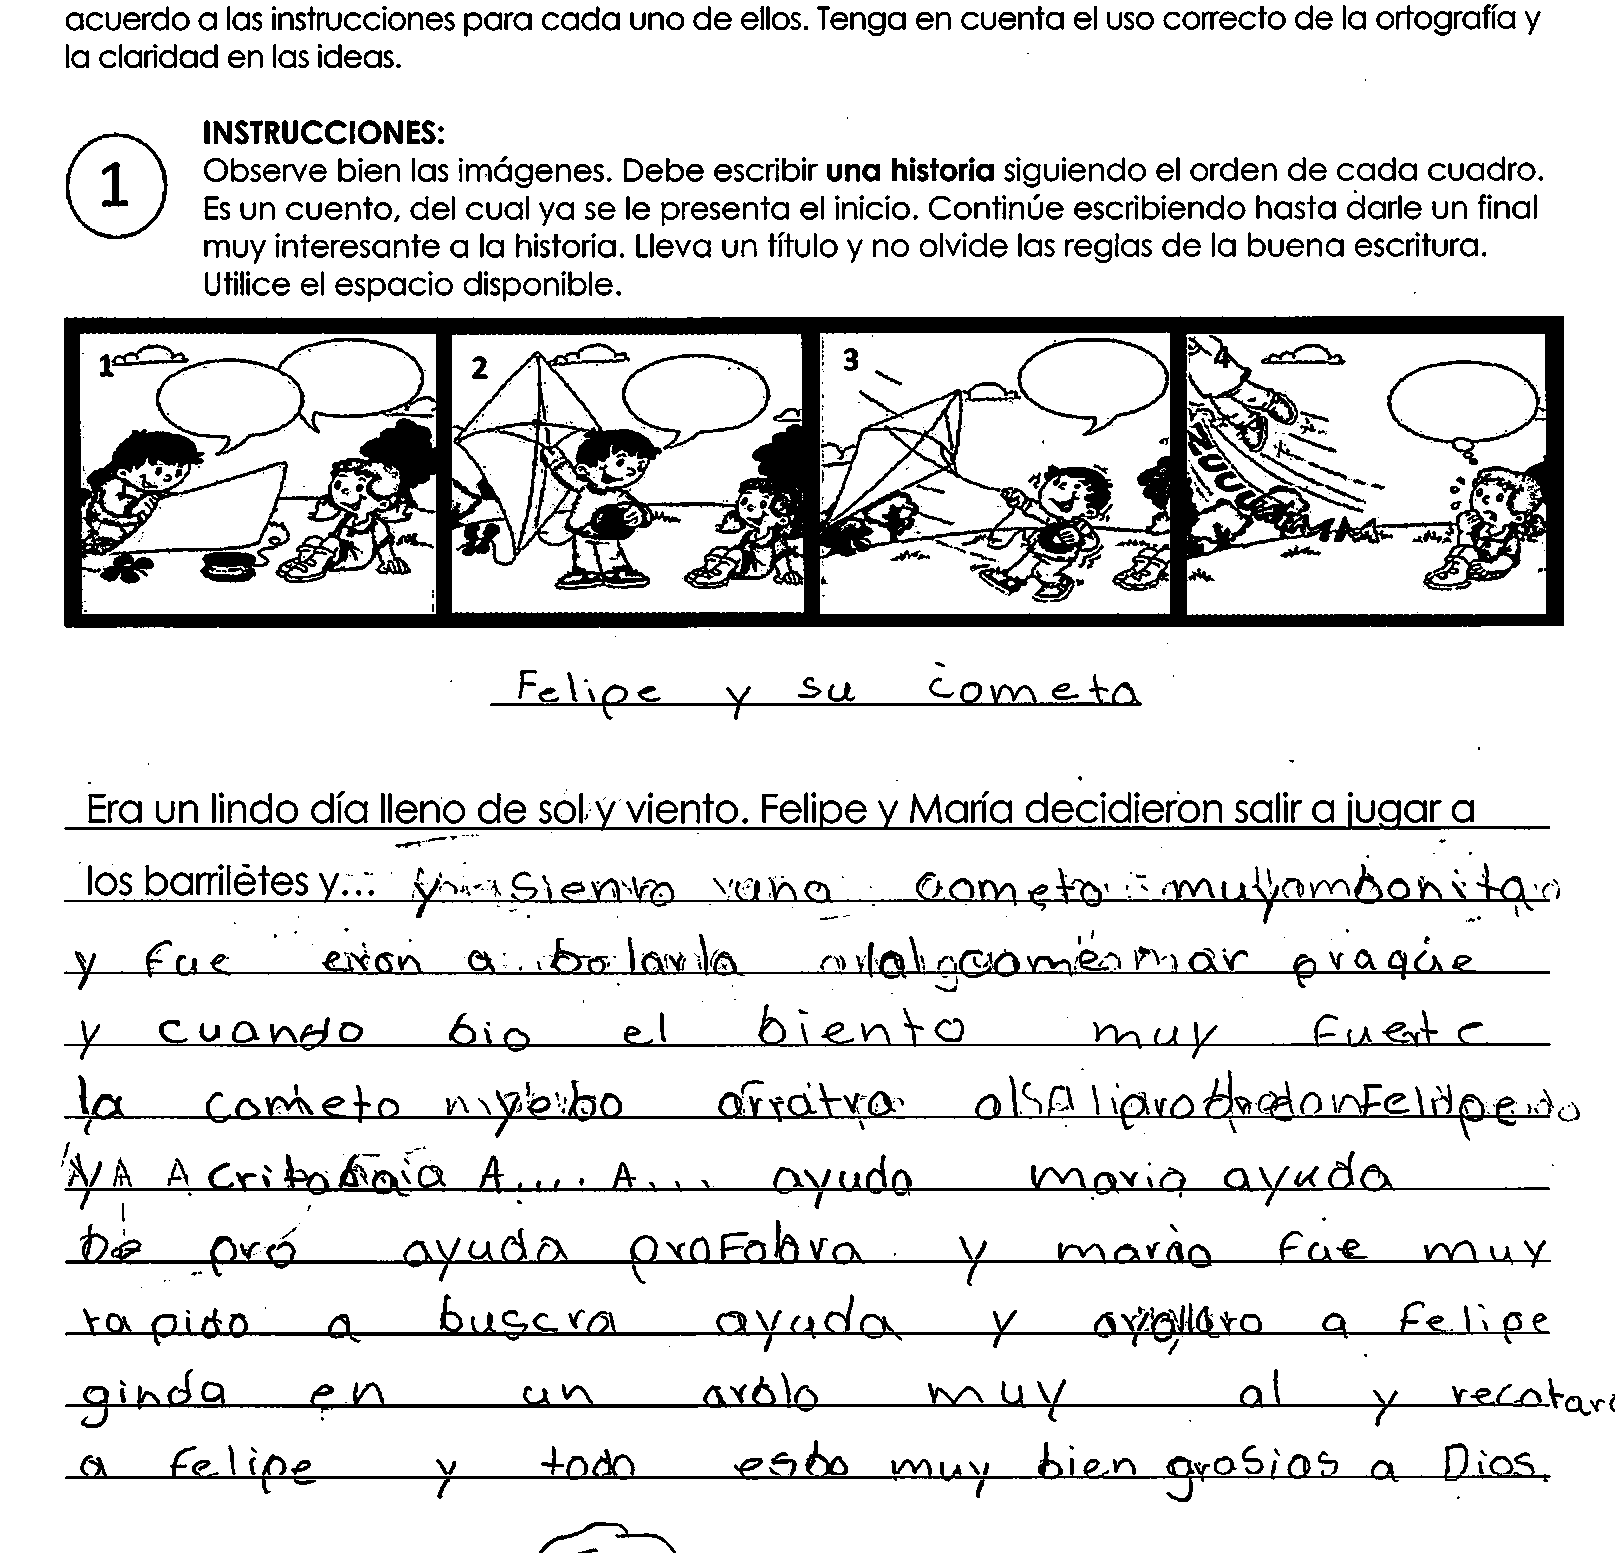 acuerdo a las instrucciones para cada uno de ellos. Tenga en cuenta el uso correcto de la ortografía y
la claridad en las ideas.
1
INSTRUCCIONES:
Observe bien las imágenes. Debe escribir una historia siguiendo el orden de cada cuadro.
Es un cuento, del cual ya se le presenta el inicio. Continúe escribiendo hasta darle un final
muy interesante a la historia. Lleva un título y no olvide las reglas de la buena escritura.
Utilice el espacio disponible.
1 2 3 4
Felipe y su cometa
Era un lindo día lleno de sol y viento. Felipe y María decidieron salir a jugar a
los barriletes y... y una cometa
y fue eron a bolarla praque
y cuando bio el biento muy fuerte
la cometo arratra
A.... A... ayuda maria ayuda
pro ayuda profabra y maria fue muy
rapido a buscra ayuda y a Felipe
ginda en un arolo muy al y recataro
a Felipe y todo esbo muy bien grasias a Dios.